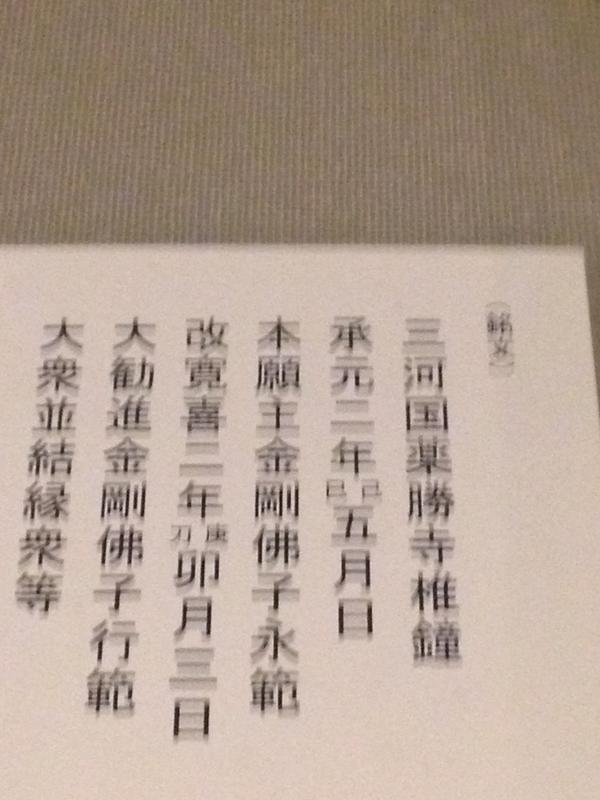 （銘文）
三河国薬勝寺椎鐘
承元二年己巳五月日
本願主金剛佛子永範
改寛喜二年庚刁卯月三日
大勧進金剛佛子行範
大衆並結縁衆等